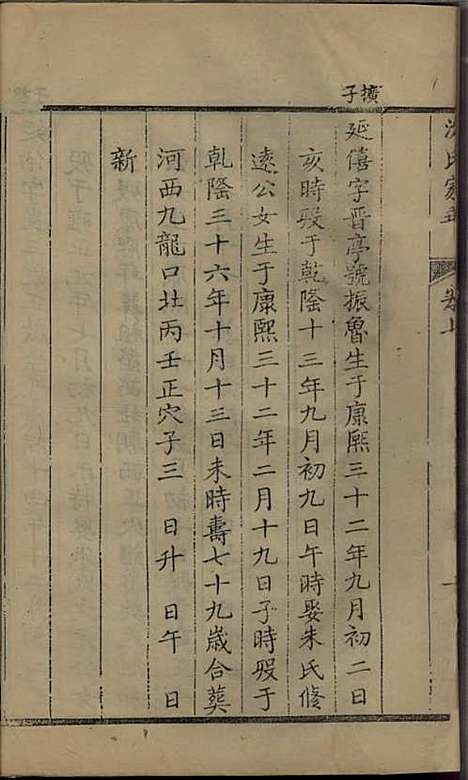 沈氏家乘 卷七
壙子
延僖字晋亭號振魯生于康熙三十二年九月初二日
亥時殁于乾隆十三年九月初九日午時娶朱氏修
遠公女生于康熙三十二年二月十九日子時殁于
乾隆三十六年十月十三日未時壽七十九歲合葬
河西九龍口北丙壬正穴子三 日升 日午 日
新